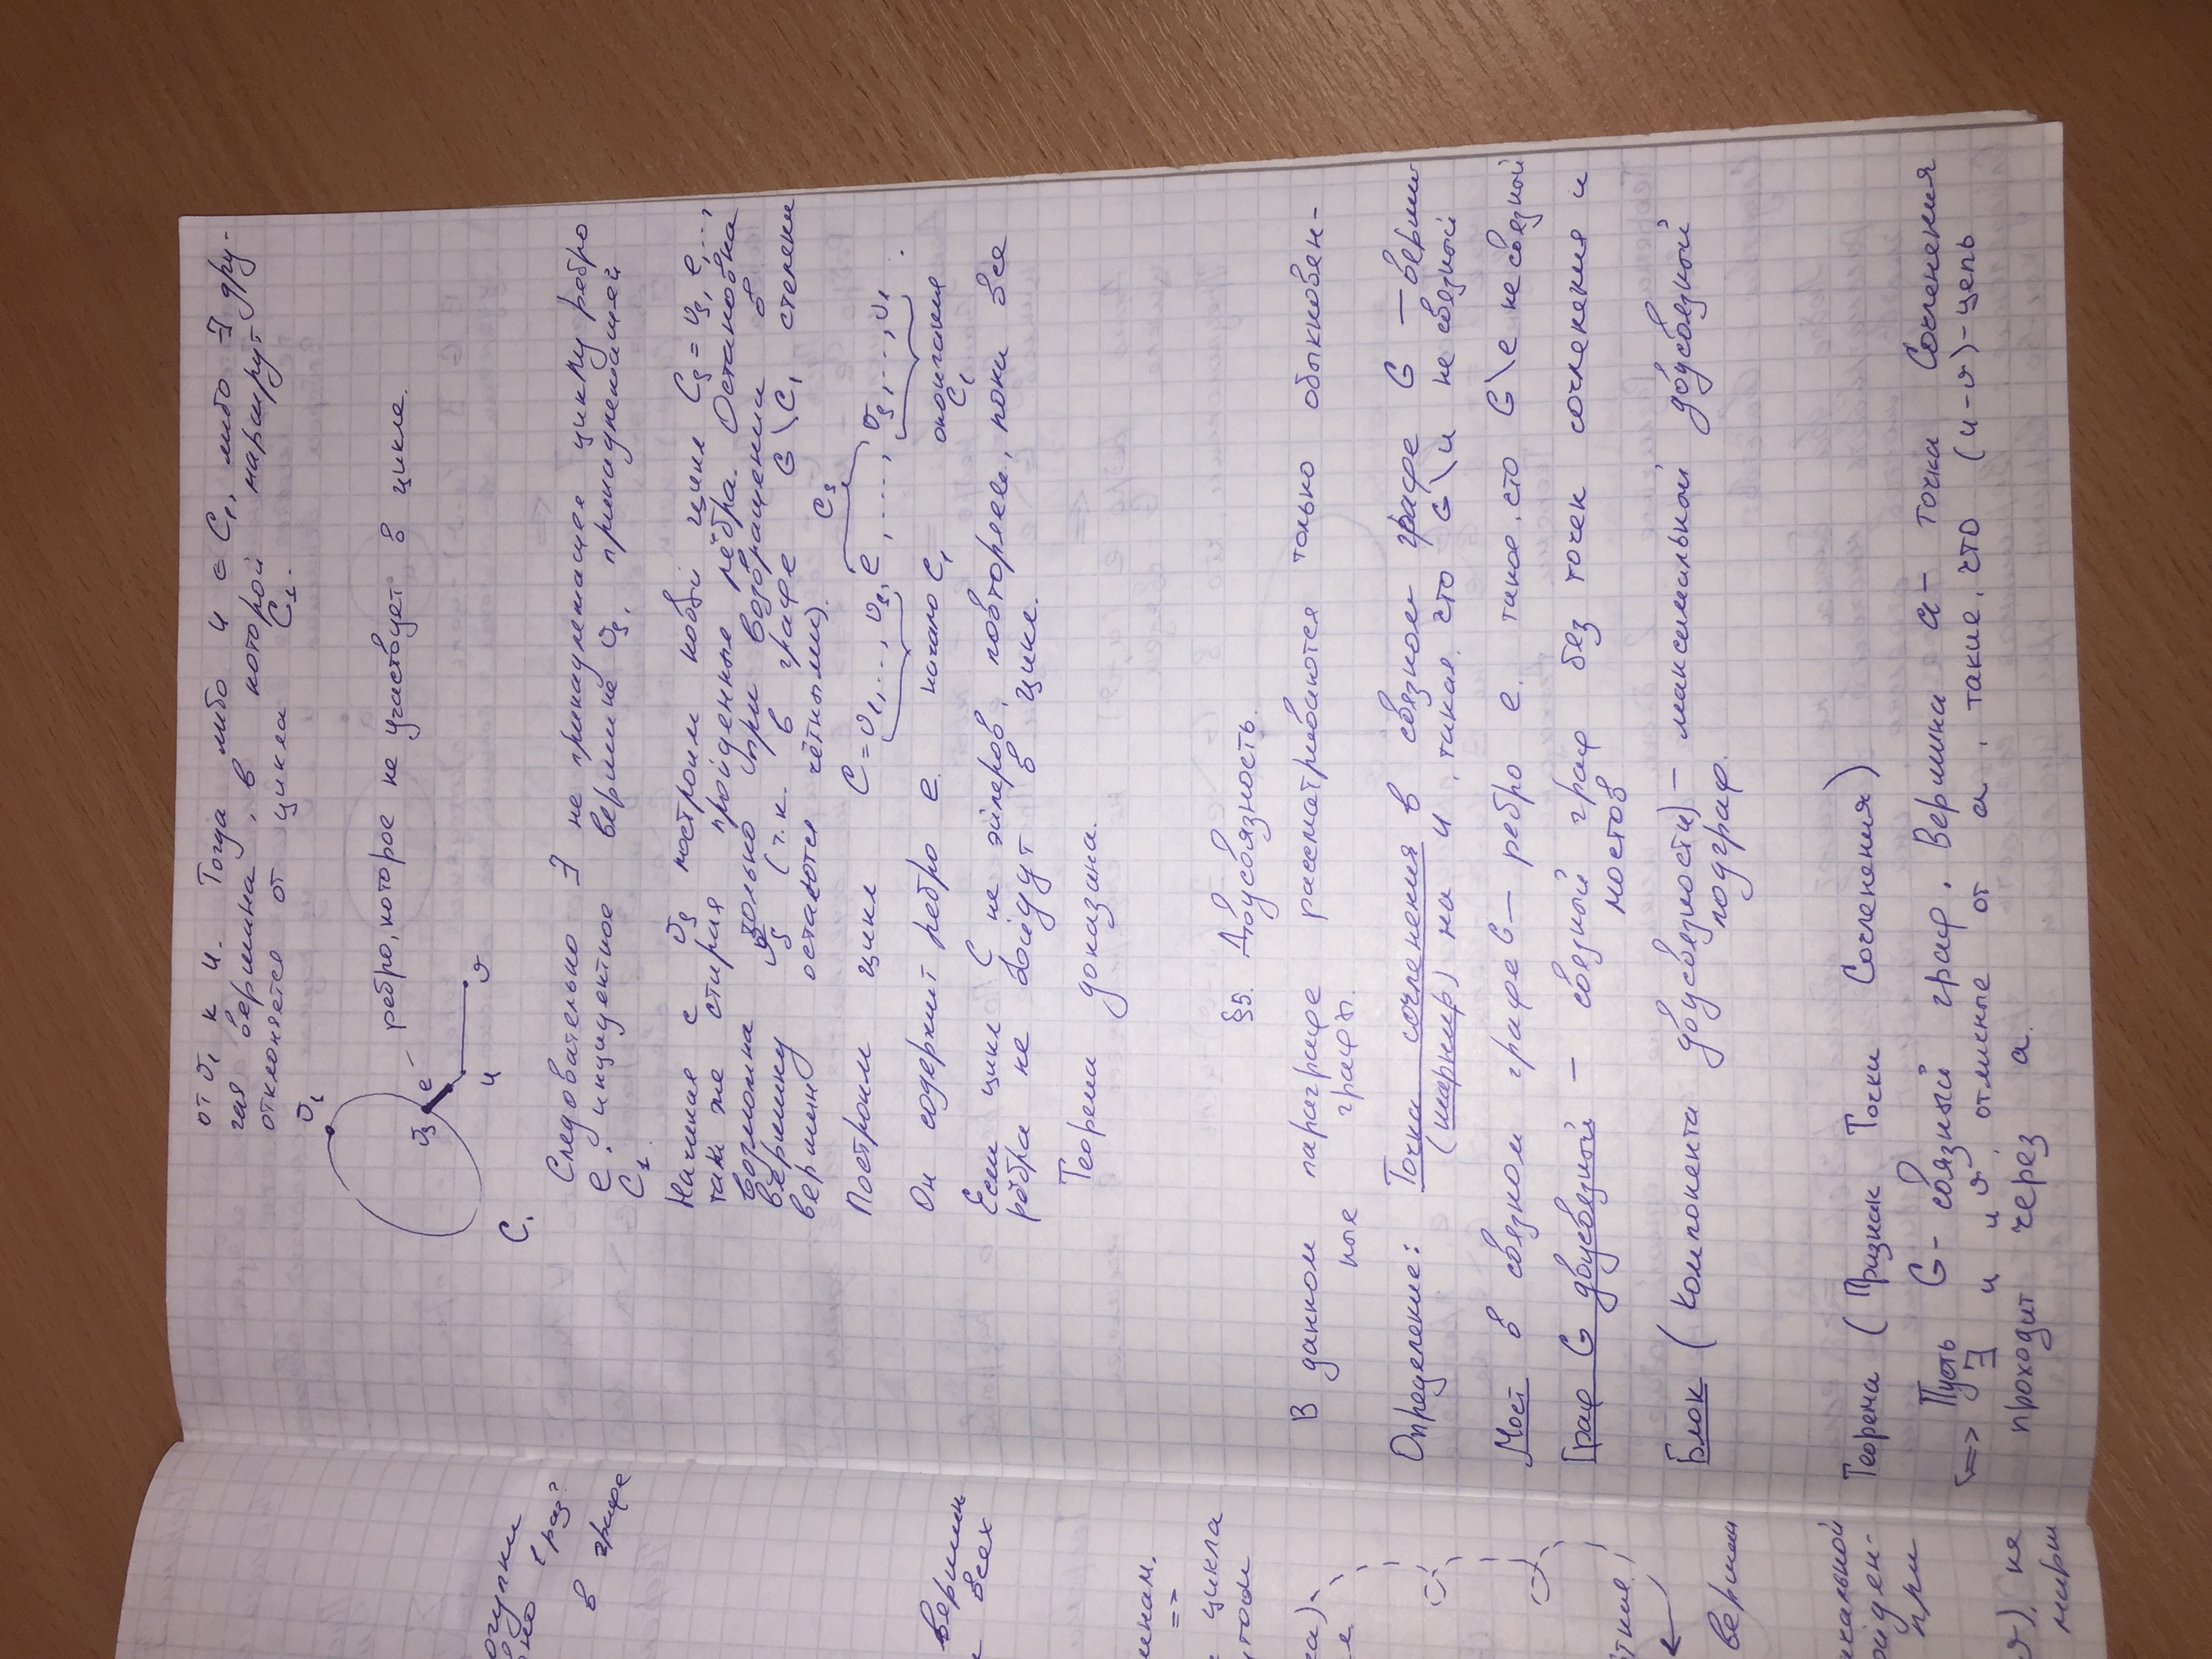 от v₁ к u. Тогда либо u ∈ C₁, либо ∃ дру-
гая вершина, в которой маршрут
отклоняется от цикла C₁.
v₁
ребро, которое не участвует в цикле.
v₃ e
u v
C₁
Следовательно ∃ не принадлежащее циклу ребро
e, инцидентное вершине v₃, принадлежащей
C₁.
Начиная с v₃ построим новый цикл C₃ = v₃, e, ...,
так же стирая пройденные рёбра. Остановка
возможна только при возвращении в
вершину v₃ (т.к. в графе G\C₁ степени
вершин остаются чётными).
C₃
Построим цикл C = v₁, ..., v₃, e, ...., v₃, ..., v₁.
Он содержит ребро e. начало C₁ окончание
C₁
Если цикл C не эйлеров, повторяем, пока все
рёбра не войдут в цикл.
Теорема доказана.
§5. Двусвязность.
В данном параграфе рассматриваются только обыкновен-
ные графы.
Определение: Точка сочленения в связном графе G — верши-
(шарнир) на u, такая, что G\u не связный
Мост в связном графе G — ребро e, такое, что G\e не связный
Граф G двусвязный — связный граф без точек сочленения и
мостов
Блок (компонента двусвязности) — максимальной двусвязной
подграф.
Теорема (Признак Точки Сочленения)
Пусть G - связный граф. Вершина a — точка Сочленения
<=> ∃ u и v, отличные от a, такие, что (u-v)-цепь
проходит через a.
в графе
вершин
всех
=>
цикла
вершин
ойден-
при
v), не